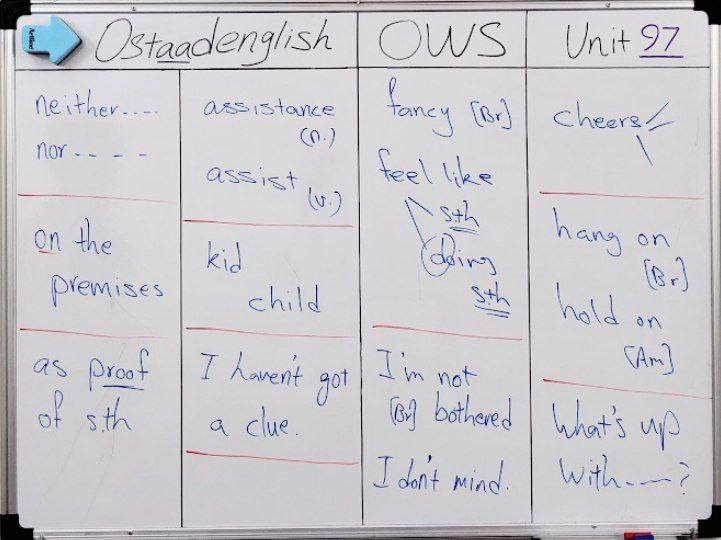 Artline
Ostaadenglish
OWS
Unit 97
neither....
nor - - - -
on the
premises
as proof
of s.th
assistance
(n.)
assist
(v.)
kid
child
I haven't got
a clue.
fancy [Br]
feel like
s.th
doing
s.th
I'm not
[Br] bothered
I don't mind.
cheers
hang on
[Br]
hold on
[Am]
What's up
with-----?